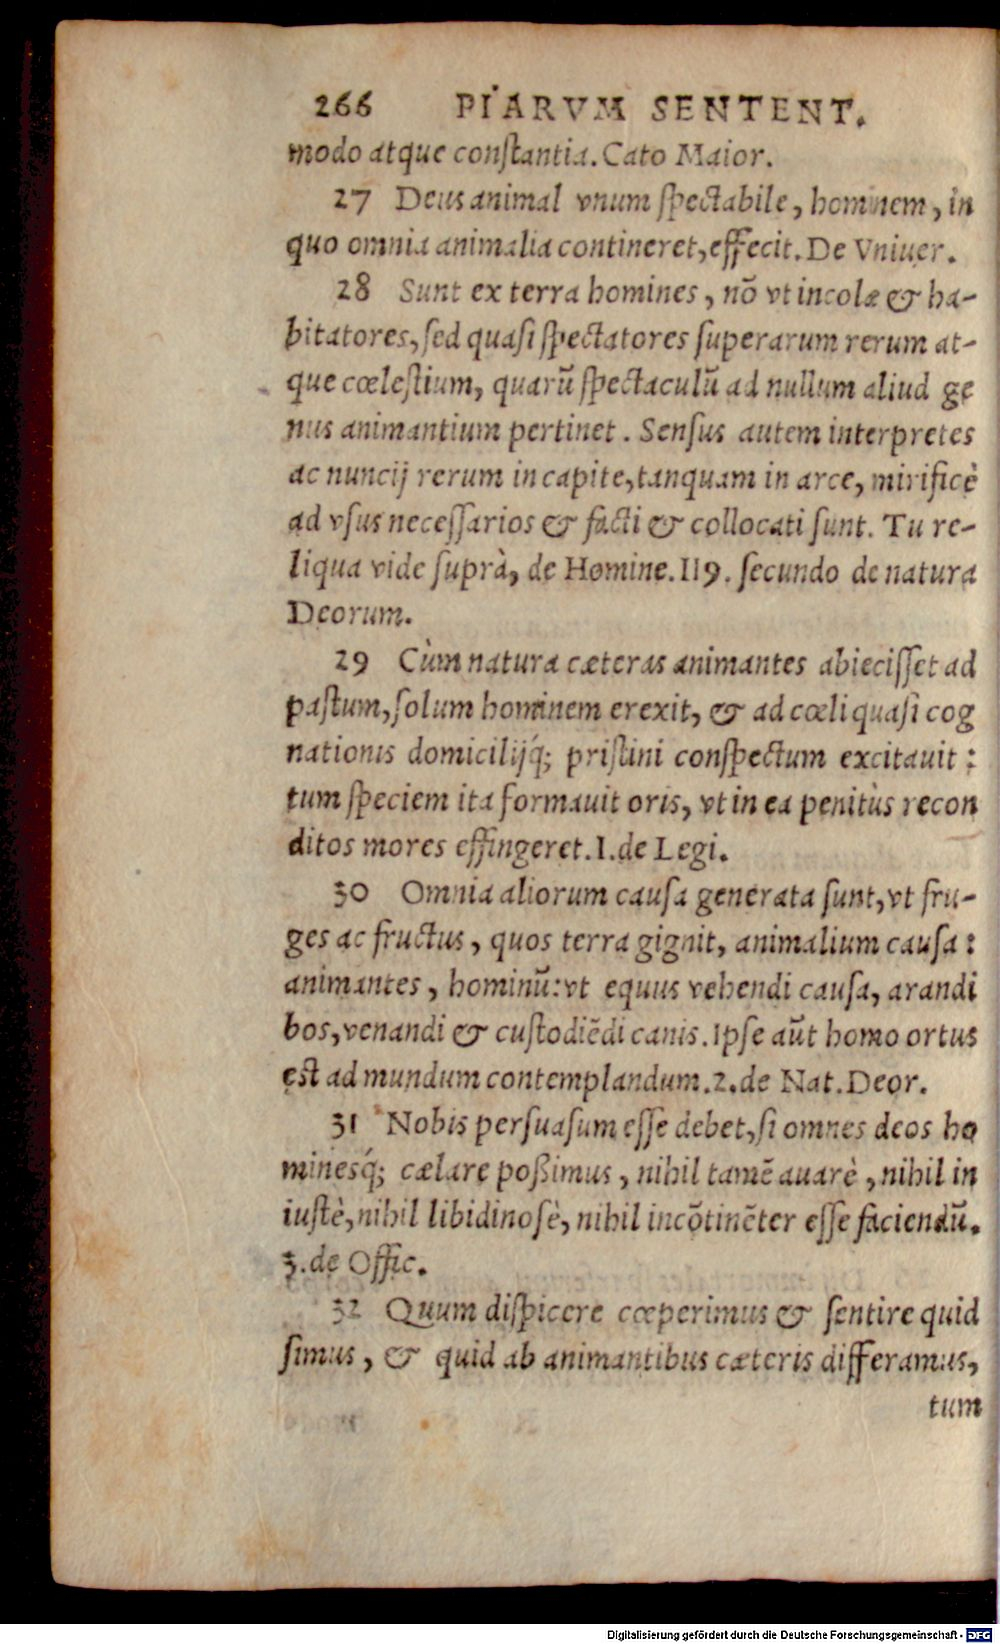 266 PIARVM SENTENT.
modo atque conſtantia. Cato Maior.
27 Deus animal vnum ſpectabile, hominem, in
quo omnia animalia contineret, effecit. De Vniuer.
28 Sunt ex terra homines, nõ vt incolæ & ha-
bitatores, ſed quaſi ſpectatores ſuperarum rerum at-
que cœleſtium, quarũ ſpectaculũ ad nullum aliud ge
nus animantium pertinet. Senſus autem interpretes
ac nuncij rerum in capite, tanquam in arce, mirificè
ad vſus neceſſarios & facti & collocati ſunt. Tu re-
liqua vide ſuprà, de Homine. 119. ſecundo de natura
Deorum.
29 Cùm natura cæteras animantes abieciſſet ad
paſtum, ſolum hominem erexit, & ad cœli quaſi cog
nationis domicilijq́; priſtini conſpectum excitauit:
tum ſpeciem ita formauit oris, vt in ea penitùs recon
ditos mores effingeret. I. de Legi.
30 Omnia aliorum cauſa generata ſunt, vt fru-
ges ac fructus, quos terra gignit, animalium cauſa:
animantes, hominũ: vt equus vehendi cauſa, arandi
bos, venandi & cuſtodiẽdi canis. Ipſe aũt homo ortus
est ad mundum contemplandum. 2. de Nat. Deor.
31 Nobis perſuaſum eſſe debet, ſi omnes deos ho
minesq́; cælare poßimus, nihil tamẽ auarè, nihil in
iuſtè, nihil libidinoſè, nihil incõtinẽter eſſe faciendũ.
3. de Offic.
32 Quum diſpicere cœperimus & ſentire quid
ſimus, & quid ab animantibus cæteris differamus,
tum
Digitalisierung gefördert durch die Deutsche Forschungsgemeinschaft - DFG